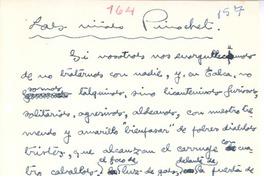 164
157
Los niños Pinochet.
Si nosotros nos enorgullecemos
de no tratarnos con nadie, y, en Talca, no
somos talquinos, sino licanteninos furiosos,
solitarios, agresivos, aldeanos, con nuestro tre
mendo y amarillo bienpasar" de pobres diablos
tristes, que alcanzan el carruaje con cua
tro caballos, el foco de luz de gas, delante de la puerta de